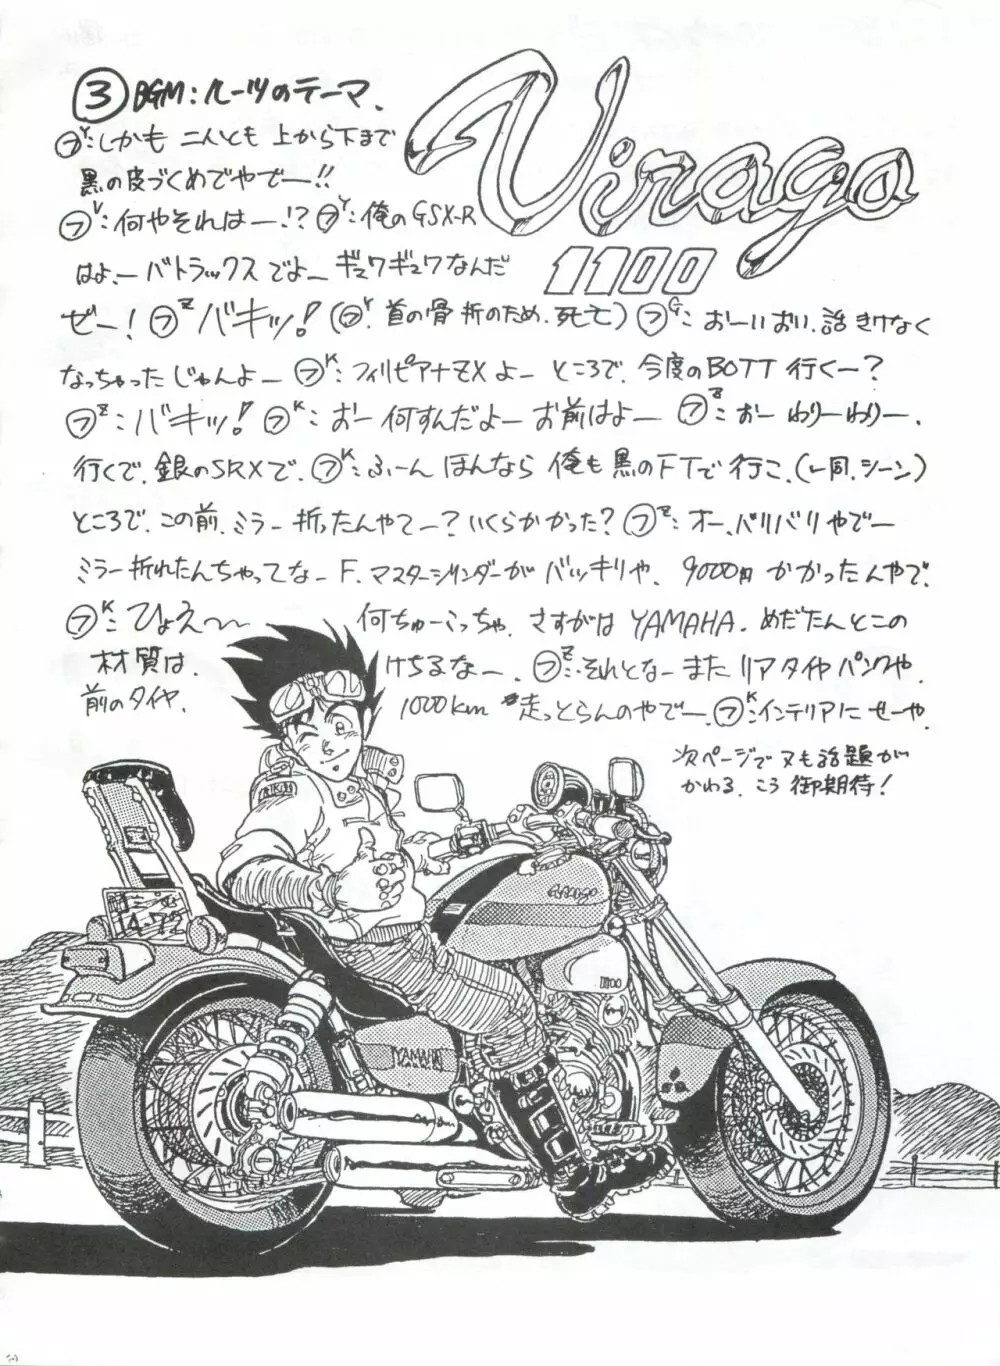 Virago
1100
③ BGM:ルーツのテーマ、
フY:しかも 二人とも 上から下まで
黒の皮づくめでやでー!!
フV:何やそれはー!? フY:俺のGSX-R
はよ、ーバトラックスでよー ギュワギュワなんだ
ぜー! フZ バキッ! (フY. 首の骨 折のため、死亡) フG:おーいおい、話きけなく
なっちゃったじゃんよー フK:フィリピアナZXよー ところで、今度のBOTT 行くー?
フZ:バキッ! フK:おー何すんだよー お前はよー フZ:おー わりーわりー、
行くで、銀のSRXで、フK:ふーん ほんなら 俺も黒のFTで行こ、(一同、シーン)
ところで、この前、ミラー折ったんやてー? いくらかかった? フZ:オー、バリバリやでー
ミラー折れたんちゃってなー F.マスターシリンダーが バッキリや、9000円かかったんやで、
フK:ひょえ〜 何ちゅーこっちゃ、さすがは YAMAHA. めだたんとこの
材質は、 けちるなー、 フZ:それとなー また リアタイヤ パンクや、
前のタイヤ、 1000km 走っとらんのやでー、 フK:インテリアにせーや、
次ページで又も話題が
かわる、こう御期待!
14-72
Virago
1100
YAMAHA